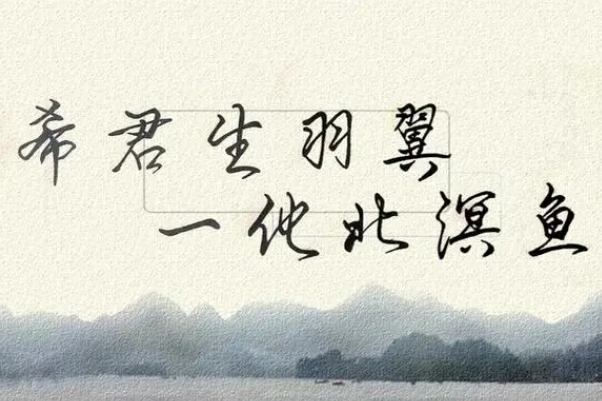 希君生羽翼
一化北溟鱼